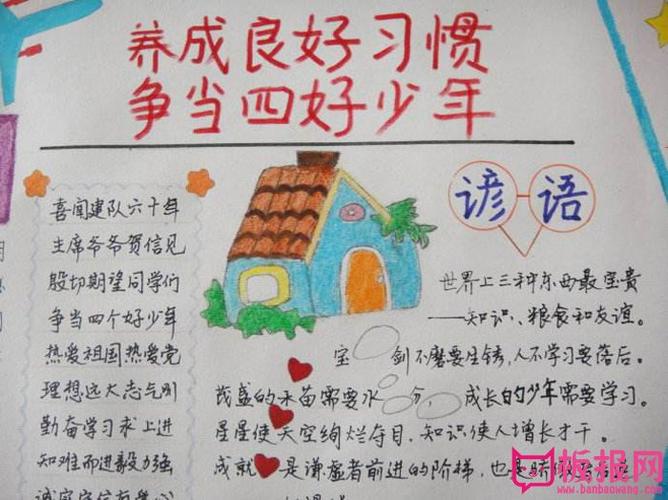 养成良好习惯
争当四好少年
喜闻建队六十年
主席爷爷贺信见
殷切期望同学们
争当四个好少年
热爱祖国热爱党
理想远大志气刚
勤奋学习求上进
知难而进毅力强
谚语
世界上三种东西最宝贵
——知识、粮食和友谊。
宝剑不磨要生锈,人不学习要落后。
茂盛的禾苗需要水分,成长的少年需要学习。
星星使天空绚烂夺目,知识使人增长才干。
成就是谦虚者前进的阶梯,也是骄傲者
板报网
www.banbaowang.com